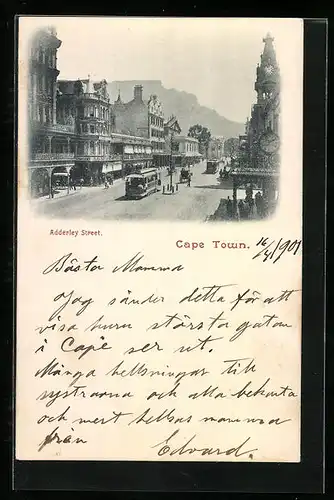 Adderley Street.
Cape Town. 16/4/1901
Bästa Mamma
Jag sänder detta för att
visa huru största gatan
i Cape ser ut.
Många helsningar till
systrarna och alla bekanta
och mest helsas mamma
från
Edvard.